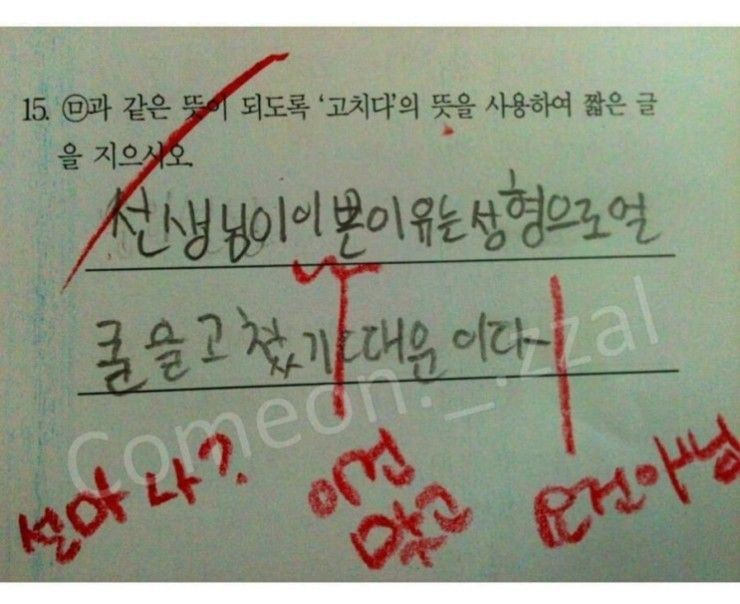 15. ㉤과 같은 뜻이 되도록 '고치다'의 뜻을 사용하여 짧은 글
을 지으시오.
선생님이 이쁜이유는 성형으로 얼
굴을 고쳤기 때문이다
설마 나?
이건
맞고
요건 아님
Comeon._.zzal